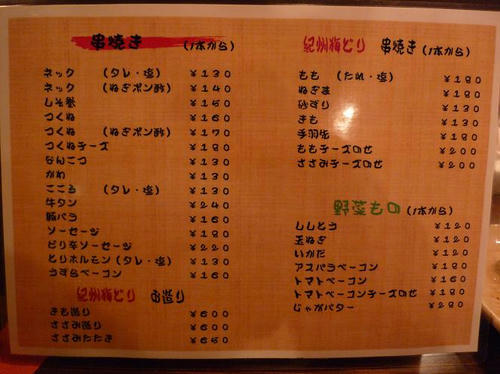 串焼き (1本から)
ネック (タレ・塩) ¥130
ネック (ねぎポン酢) ¥140
しそ巻 ¥150
つくね ¥160
つくね (ねぎポン酢) ¥170
つくねチーズ ¥180
なんこつ ¥130
かわ ¥130
こころ (タレ・塩) ¥130
牛タン ¥240
豚バラ ¥160
ソーセージ ¥180
ピリ辛ソーセージ ¥220
とりホルモン (タレ・塩) ¥130
うずらベーコン ¥160
紀州梅どり お造り
きも造り ¥600
ささみ造り ¥600
ささみたたき ¥650
紀州梅どり 串焼き (1本から)
もも (たれ・塩) ¥180
ねぎま ¥180
砂ずり ¥130
きも ¥130
手羽先 ¥180
ももチーズのせ ¥200
ささみチーズのせ ¥200
野菜もの (1本から)
ししとう ¥120
玉ねぎ ¥120
いかだ ¥120
アスパラベーコン ¥180
トマトベーコン ¥160
トマトベーコンチーズのせ ¥180
じゃがバター ¥280